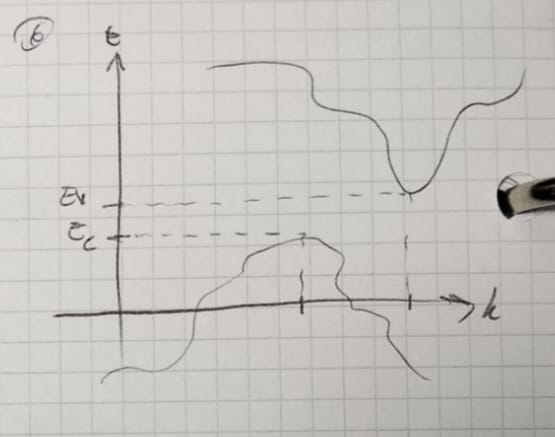 6
E
Ev
Ec
k